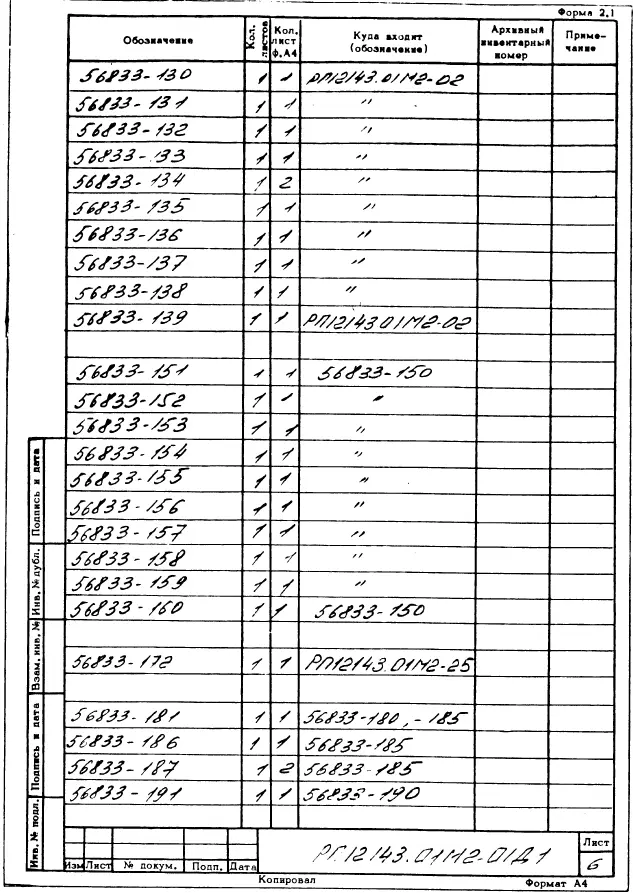 Форма 2.1
Обозначение Кол. листов Кол. лист ф.А4 Куда входит (обозначение) Архивный инвентарный номер Примечание
56833-130 1 1 РП12143.01М2-02
56833-131 1 1 "
56833-132 1 1 "
56833-133 1 1 "
56833-134 1 2 "
56833-135 1 1 "
56833-136 1 1 "
56833-137 1 1 "
56833-138 1 1 "
56833-139 1 1 РП12143.01М2-02
56833-151 1 1 56833-150
56833-152 1 1 "
56833-153 1 1 "
56833-154 1 1 "
56833-155 1 1 "
56833-156 1 1 "
56833-157 1 1 "
56833-158 1 1 "
56833-159 1 1 "
56833-160 1 1 56833-150
56833-172 1 1 РП12143.01М2-25
56833-181 1 1 56833-180,-185
56833-186 1 1 56833-185
56833-187 1 2 56833-185
56833-191 1 1 56833-190
Подпись и дата
Инв. № дубл.
Взам. инв. №
Подпись и дата
Инв. № подл.
РП12143.01М2-01Д1
Лист
6
Изм Лист № докум. Подп. Дата
Копировал Формат А4